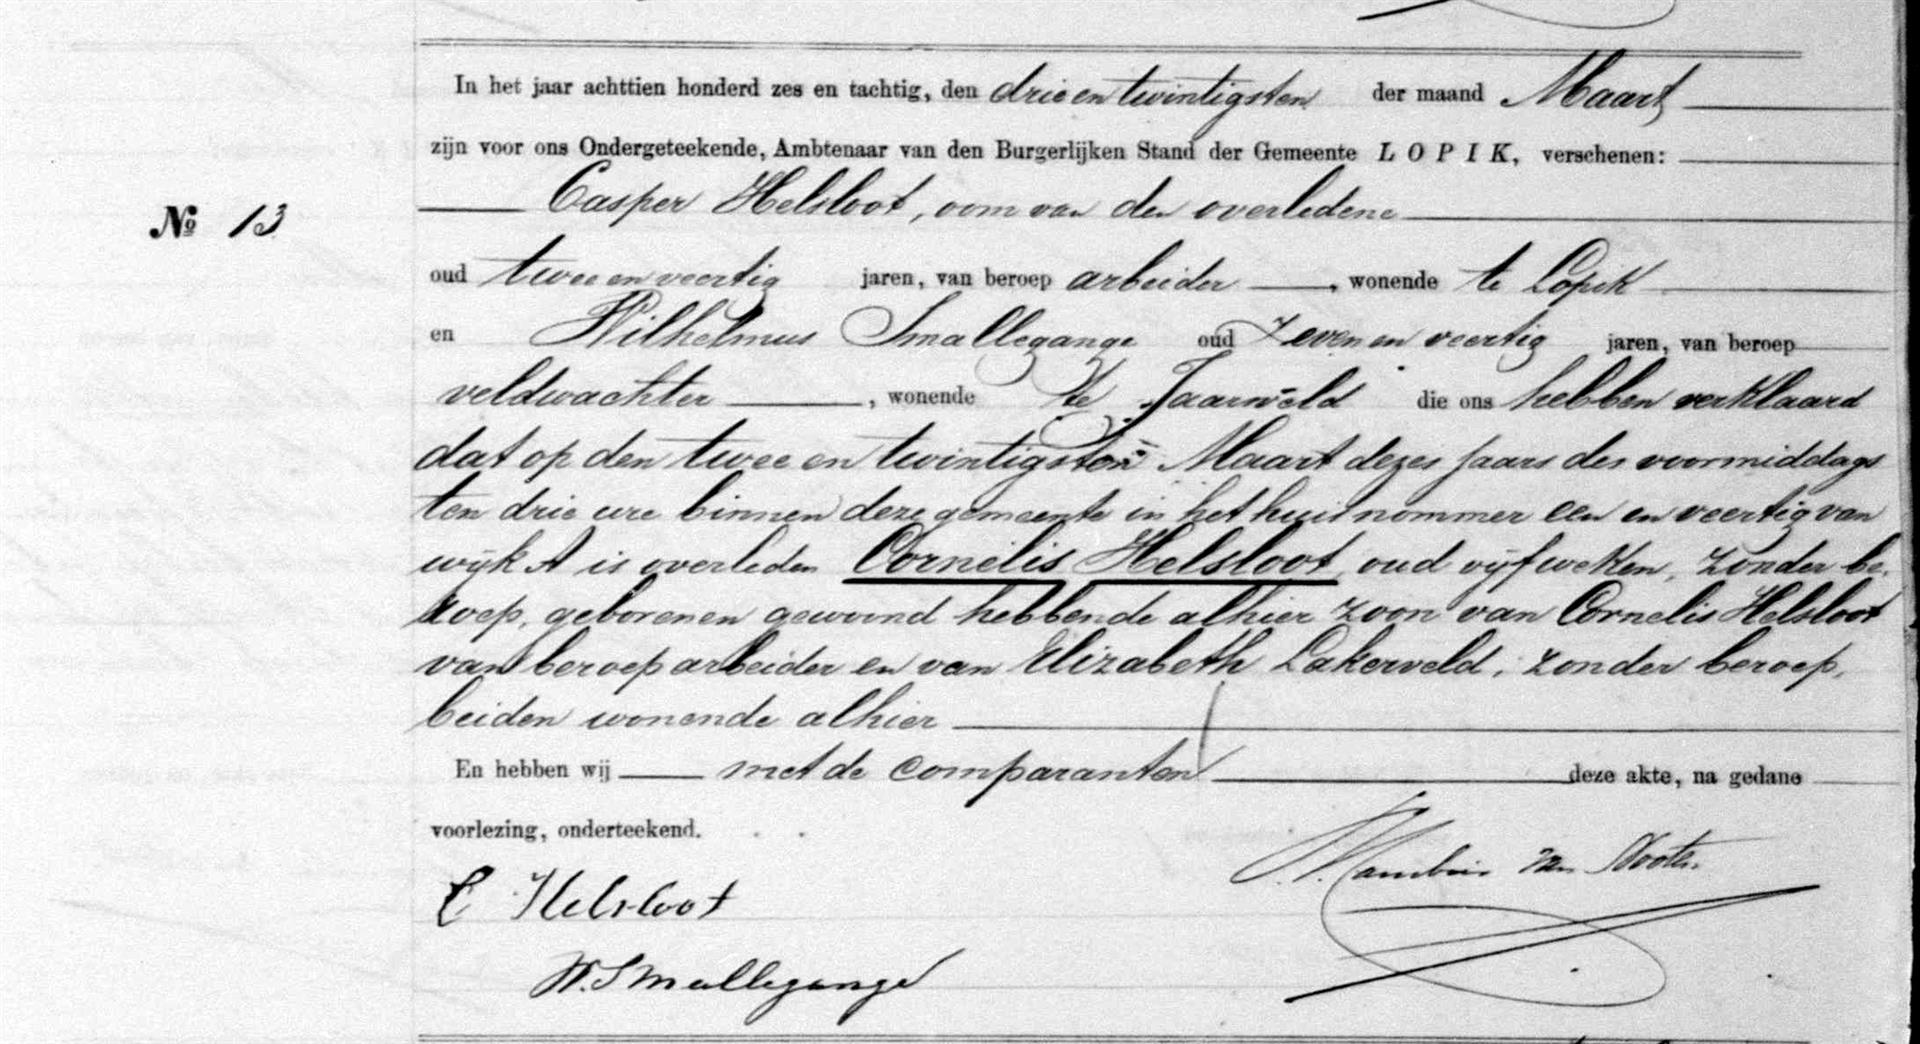 In het jaar achttien honderd zes en tachtig, den drie en twintigsten der maand Maart
zijn voor ons Ondergeteekende, Ambtenaar van den Burgerlijken Stand der Gemeente LOPIK, verschenen:
Casper Helsloot, oom van den overledene
№ 13
oud twee en veertig jaren, van beroep arbeider, wonende te Lopik
en Wilhelmus Smallegange oud zeven en veertig jaren, van beroep
veldwachter, wonende te Jaarsveld die ons hebben verklaard
dat op den twee en twintigsten Maart dezes jaars des voormiddags
ten drie ure binnen deze gemeente in het huis nommer een en veertig van
wijk A is overleden Cornelis Helsloot, oud vijf weken, zonder be-
roep, geboren en gewoond hebbende alhier zoon van Cornelis Helsloot
van beroep arbeider en van Elizabeth Lakerveld, zonder beroep,
beiden wonende alhier
En hebben wij met de comparanten deze akte, na gedane
voorlezing, onderteekend.
C Helsloot
W. Smallegange